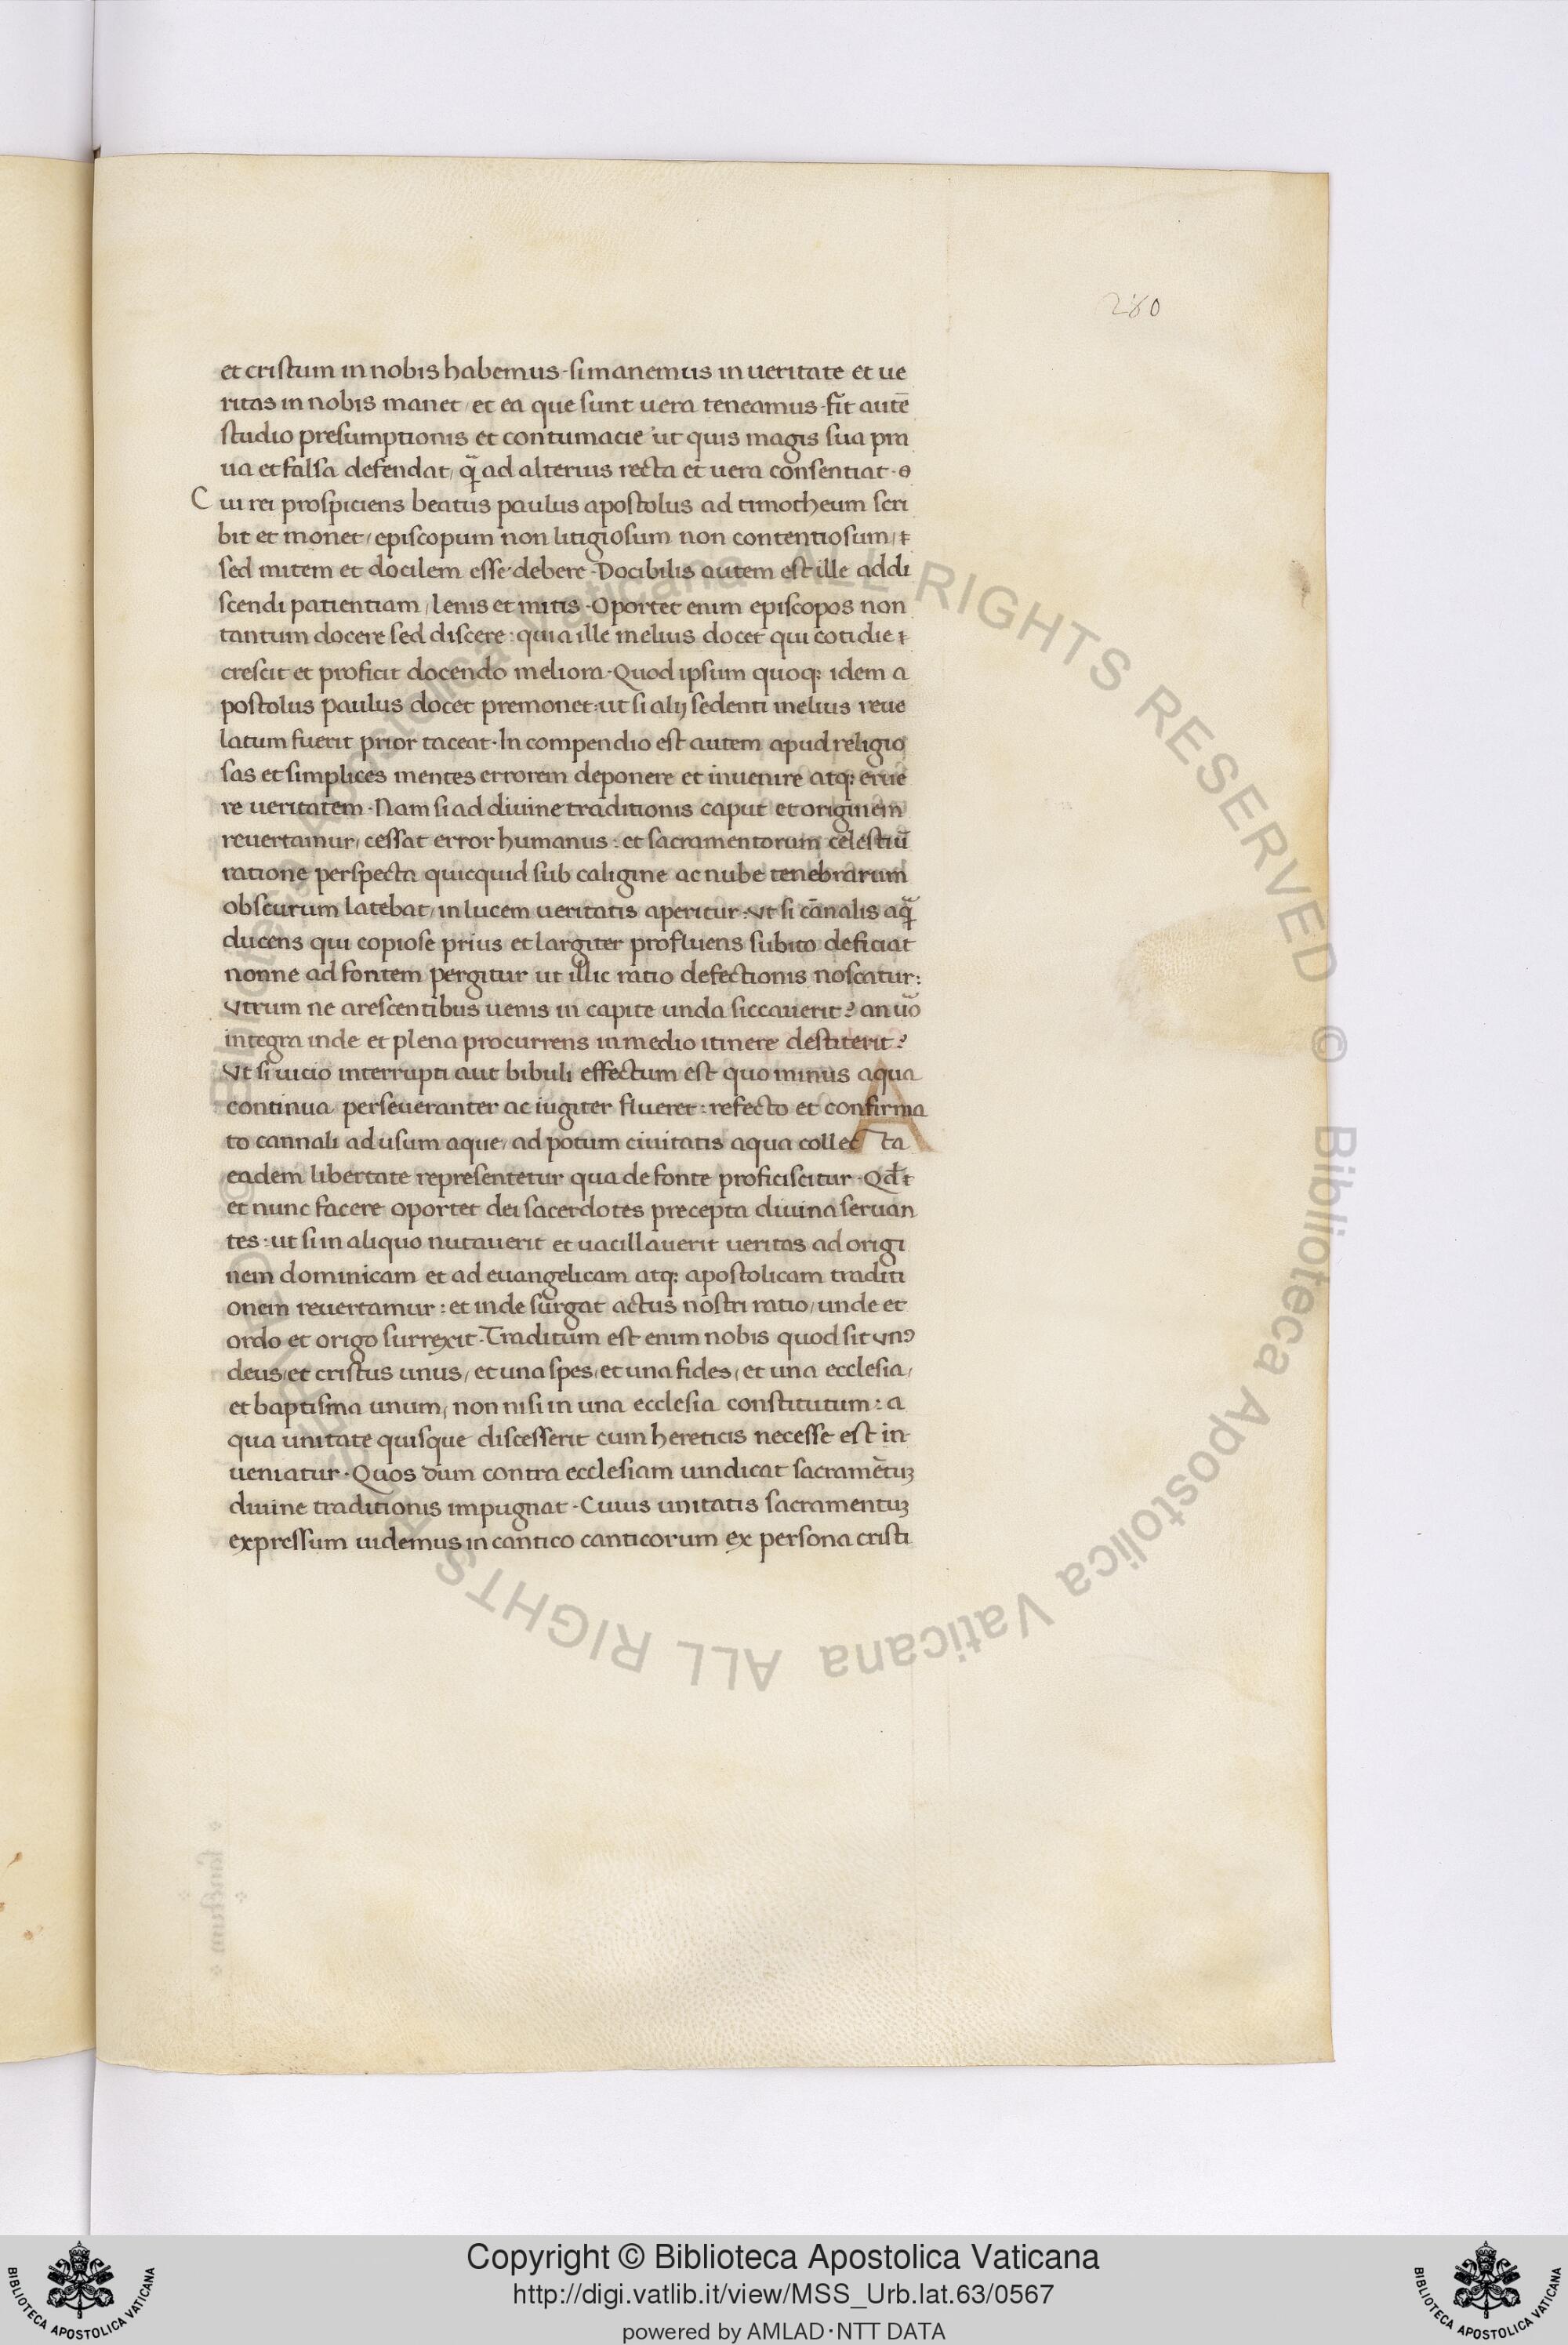 280
et cristum in nobis habemus · si manemus in ueritate et ue
ritas in nobis manet / et ea que sunt uera teneamus · fit autē
studio presumptionis et contumacie ut quis magis sua pra
ua et falsa defendat / qᷓ ad alterius recta et uera consentiat ·
Cui rei prospiciens beatus paulus apostolus ad timotheum scri
bit et monet / episcopum non litigiosum non contentiosum /
sed mitem et docilem esse debere · Docibilis autem est ille addi
scendi patientiam / lenis et mitis · Oportet enim episcopos non
tantum docere sed discere : quia ille melius docet qui cotidie
crescit et proficit docendo meliora · Quod ipsum quoq; idem a
postolus paulus docet premonet : ut si alij sedenti melius reue
latum fuerit prior taceat · In compendio est autem apud religio
sas et simplices mentes errorem deponere et inuenire atq; erue
re ueritatem · Nam si ad diuine traditionis caput et originem
reuertamur / cessat error humanus : et sacramentorum celestiū
ratione perspecta quicquid sub caligine ac nube tenebrarum
obscurum latebat / in lucem ueritatis aperitur : vt si cānalis aqᷓ
ducens qui copiose prius et largiter profluens subito deficiat
nonne ad fontem pergitur ut illic ratio defectionis noscatur :
vtrum ne arescentibus uenis in capite unda siccauerit ? an uo̅
integra inde et plena procurrens in medio itinere destiterit ?
Vt si uicio interrupti aut bibuli effectum est quo minus aqua
continua perseueranter ac iugiter flueret : refecto et confirma
to cannali ad usum aque / ad potum ciuitatis aqua collec ta
eadem libertate representetur qua de fonte proficiscitur · Qd̄
et nunc facere oportet dei sacerdotes precepta diuina seruan
tes : ut si in aliquo nutauerit et uacillauerit ueritas ad origi
nem dominicam et ad euangelicam atq; apostolicam traditi
onem reuertamur : et inde surgat actus nostri ratio / unde et
ordo et origo surrexit · Traditum est enim nobis quod sit vnꝰ
deus / et cristus unus / et una spes / et una fides / et una ecclesia /
et baptisma unum / non nisi in una ecclesia constitutum : a
qua unitate quisque discesserit cum hereticis necesse est in
ueniatur · Quos dum contra ecclesiam uindicat sacramētuꝫ
diuine traditionis impugnat · Cuius unitatis sacramentuꝫ
expressum uidemus in cantico canticorum ex persona cristi
© Biblioteca Apostolica Vaticana ALL RIGHTS RESERVED © Biblioteca Apostolica Vaticana ALL RIGHTS RESERVED
Copyright © Biblioteca Apostolica Vaticana
http://digi.vatlib.it/view/MSS_Urb.lat.63/0567
powered by AMLAD·NTT DATA
BIBLIOTECA APOSTOLICA VATICANA
BIBLIOTECA APOSTOLICA VATICANA